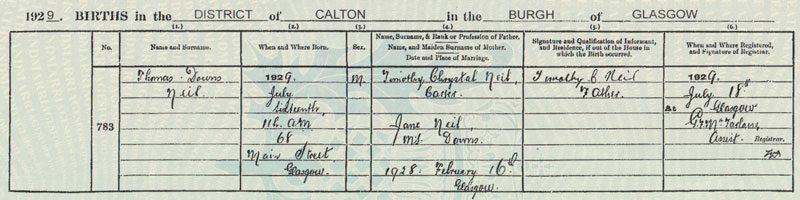 1929. BIRTHS in the DISTRICT of CALTON in the BURGH of GLASGOW
(1.) (2.) (3.) (4.) (5.) (6.)
No. Name and Surname. When and Where Born. Sex. Name, Surname, & Rank or Profession of Father. Name, and Maiden Surname of Mother. Date and Place of Marriage. Signature and Qualification of Informant, and Residence, if out of the House in which the Birth occurred. When and Where Registered, and Signature of Registrar.
Thomas Downs 1929. M. Timothy Chrystal Neil, Timothy C Neil 1929.
Neil July Carter Father. July 18th
Sixteenth, At Glasgow
783 11h. AM Jane Neil,
68 M.S. Downs. Assist. Registrar.
Main Street,
Glasgow. 1928. February 16th
Glasgow.